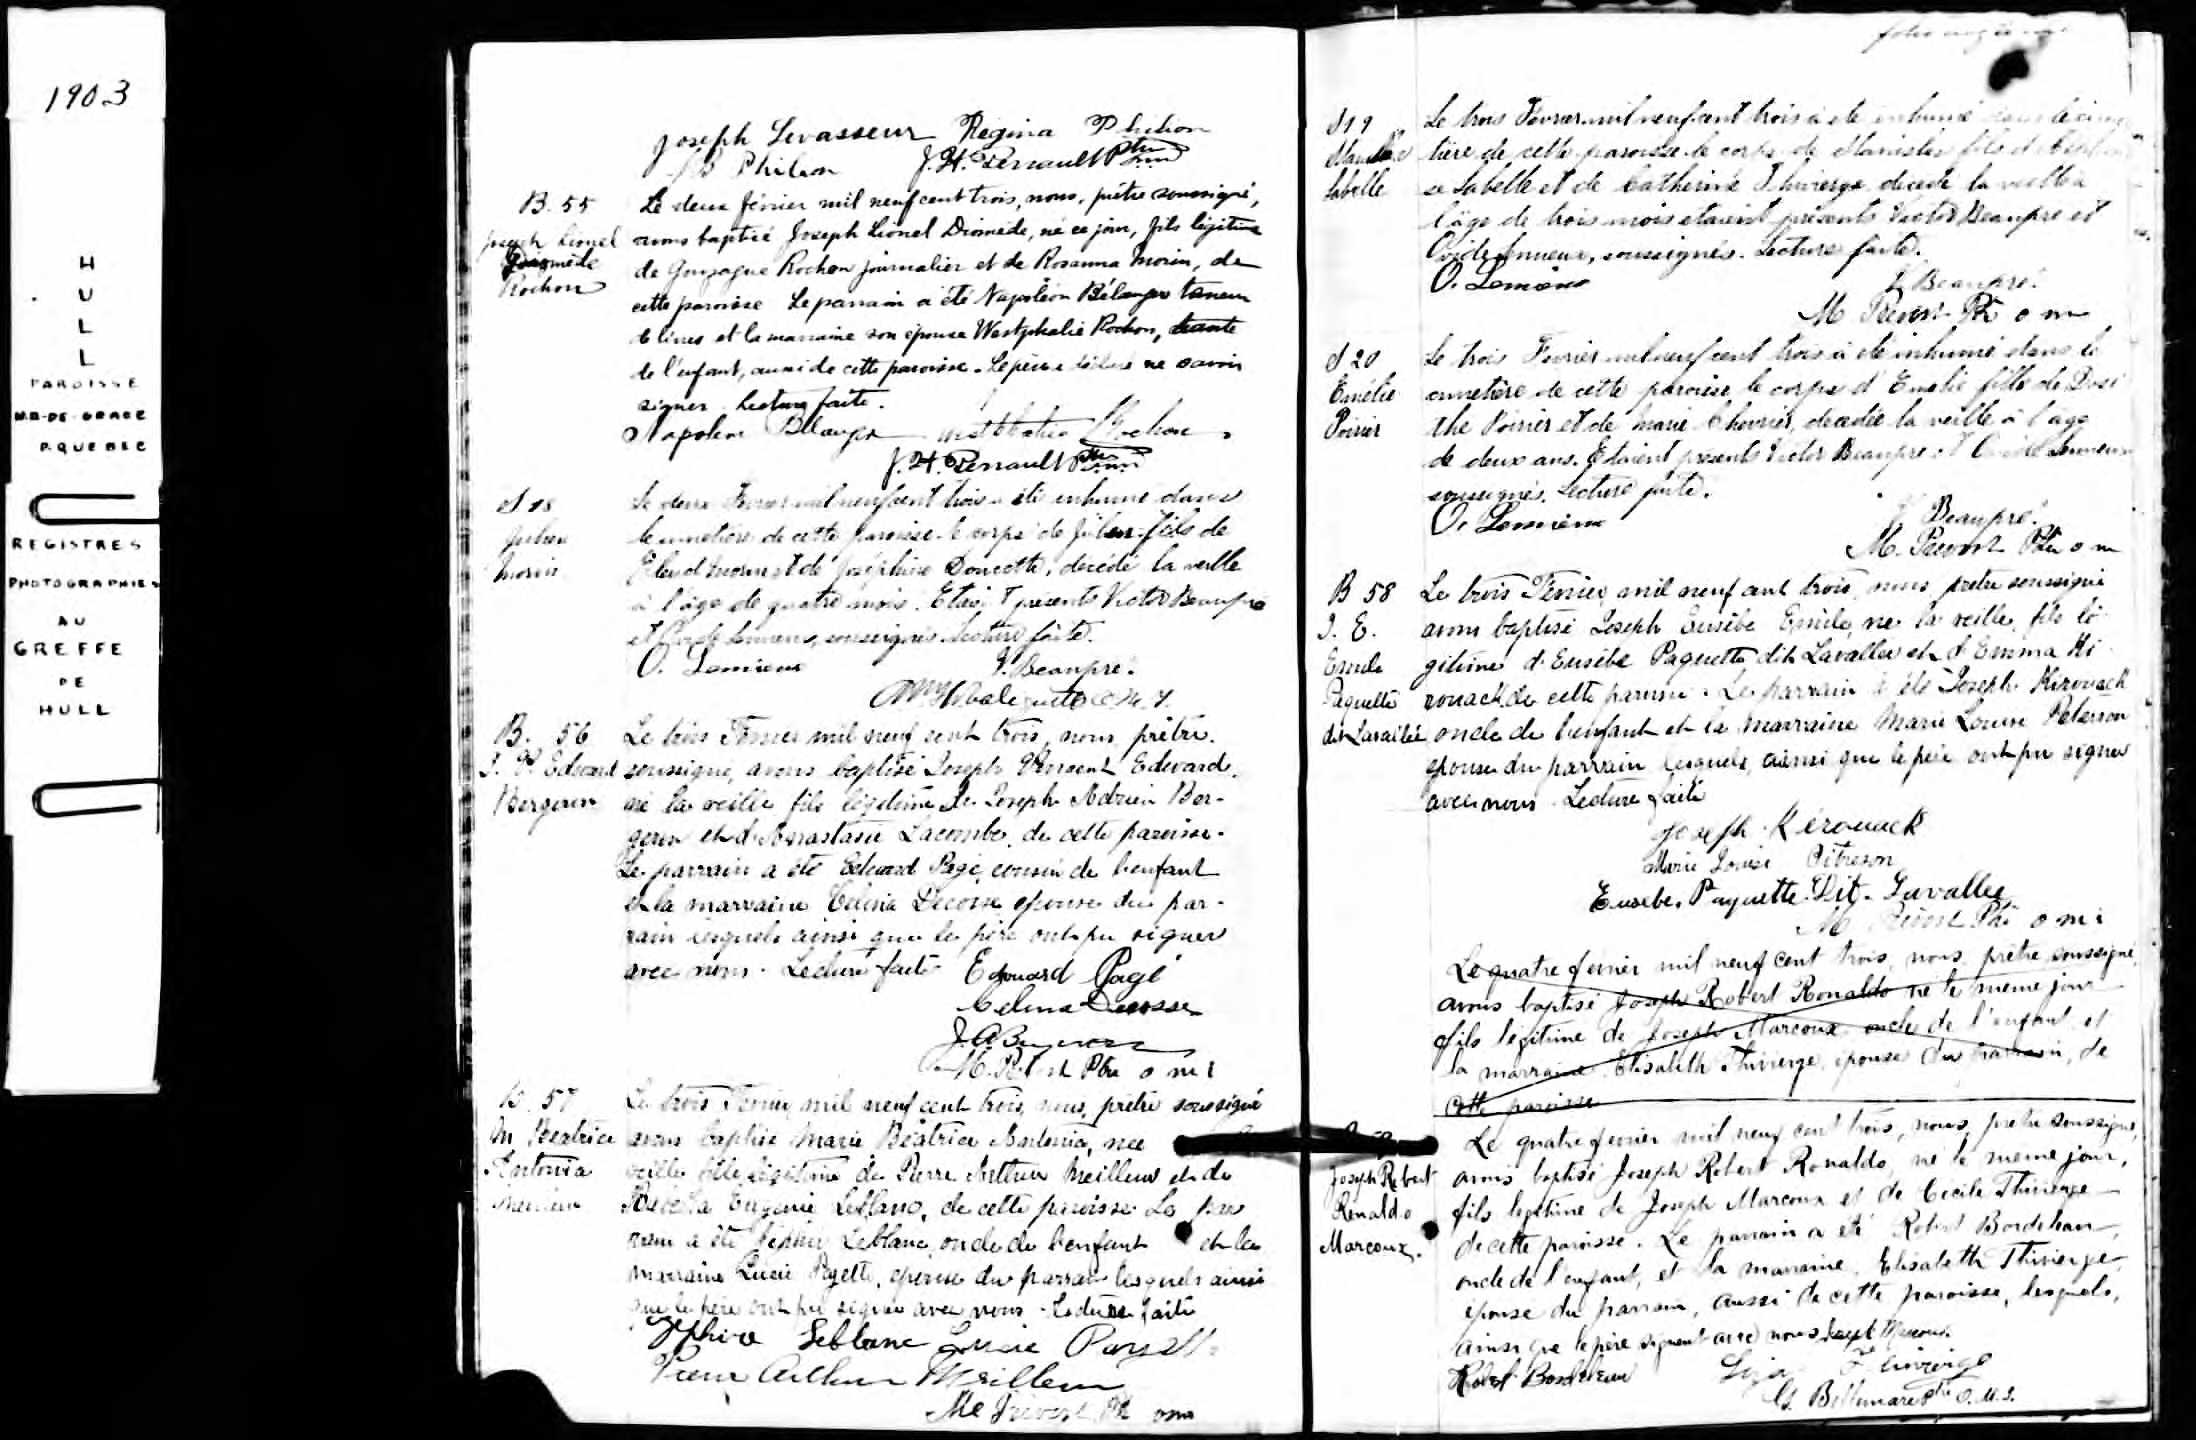 1903
HULL
PAROISSE
N.D-DE-GRACE
P. QUEBEC
REGISTRES
PHOTOGRAPHIES
AU
GREFFE
DE
HULL
Joseph Levasseur Régina Philion
J.B Philion J.H. Perrault Ptre
B. 55
Joseph Lionel
Diomède
Rochon
Le deux février mil neuf cent trois, nous, prêtre soussigné,
avons baptisé Joseph Lionel Diomède, né ce jour, fils légitime
de Gonzague Rochon journalier et de Rosanna Morin, de
cette paroisse Le parrain a été Napoléon Bélanger
et la marraine son épouse Westphalie Rochon, tante
de l'enfant, aussi de cette paroisse. Le père a déclaré ne savoir
signer. Lecture faite.
Napoleon Belanger Rochon
J.H. Perrault Ptre
S 18
Julien
Morin
Le deux Fevrier mil neuf cent trois a été inhumé dans
le cimetière de cette paroisse le corps de Julien fils de
Morin et de Joséphine Doucette, décédé la veille
à l'âge de quatre mois. Etaient présents Victor Beaupré
et Ovide Lemieux, soussignés. Lecture faite.
O. Lemieux V. Beaupré.
B. 56
J. V. Edward
Bergeron
Le trois Fevrier mil neuf cent trois, nous, prêtre
soussigné, avons baptisé Joseph Vincent Edward,
né la veille fils légitime de Joseph Adrien Ber-
geron et d'Anastasie Lacombe, de cette paroisse.
Le parrain a été Edward Pagé, cousin de l'enfant
et la marraine Célina Decosse, épouse du par-
rain lesquels ainsi que le père ont pu signer
avec nous. Lecture faite Edouard Pagé
Celina Decosse
J.A Bergeron
M. Prévost Ptre o m i
B. 57
M Béatrice
Antonia
Meilleur
Le trois Fevrier mil neuf cent trois, nous, prêtre soussigné
avons baptisé Marie Béatrice Antonia, née
veille fille légitime de Pierre Arthur Meilleur et de
Eugenie Leblanc, de cette paroisse. Le par
rain a été Zéphir Leblanc, oncle de l'enfant et la
marraine Lucie Payette, épouse du parrain lesquels ainsi
que le père ont pu signer avec nous. Lecture faite
Zéphire Leblanc
Pierre Arthur Meilleur
M Prévost Ptre omi
S 19
Stanislas
Labelle
Le trois Fevrier mil neuf cent trois a été inhumé dans le cime
tière de cette paroisse le corps de Stanislas fils
se Labelle et de Catherine Thivierge, décédé la veille à
l'âge de trois mois étaient présents Victor Beaupré et
Ovide Lemieux, soussignés. Lecture faite.
O. Lemieux V Beaupré.
M Prévost Ptre o m
S 20
Emélie
Poirier
Le trois Fevrier mil neuf cent trois a été inhumé dans le
cimetière de cette paroisse le corps d'Emélie fille de Dosi
thé Poirier et de Marie Chevrier, décédée la veille à l'âge
de deux ans. Etaient présents Victor Beaupré et Ovide Lemieux
soussignés. Lecture faite.
O. Lemieux V Beaupré.
M. Prévost Ptre o m
B 58
J. E.
Emile
Paquette
dit Lavallée
Le trois Fevrier, mil neuf cent trois, nous, prêtre soussigné
avons baptisé Joseph Eusèbe Emile, né la veille, fils lé-
gitime d'Eusèbe Paquette dit Lavallée et d'Emma Ki-
rouack de cette paroisse. Le parrain a été Joseph Kirouack
oncle de l'enfant et la marraine Marie Louise Peterson
épouse du parrain lesquels, ainsi que le père ont pu signer
avec nous. Lecture faite
Joseph Kérouack
Marie Louise Pétreson
Eusebe Paquette Dit Lavallee
M Prévost Ptre o m i
Le quatre fevrier mil neuf cent trois, nous, prêtre soussigné,
avons baptisé Joseph Robert Ronaldo né le meme jour
fils légitime de Joseph Marcoux oncle de l'enfant et
la marraine Elisabeth Thivierge, épouse du parrain, de
cette paroisse
Joseph Robert
Renaldo
Marcoux.
Le quatre fevrier mil neuf cent trois, nous, prêtre soussigné,
avons baptisé Joseph Robert Ronaldo, né le meme jour,
fils légitime de Joseph Marcoux et de Cécile Thivierge
de cette paroisse. Le parrain a été Robert Bordeleau,
oncle de l'enfant, et la marraine, Elisabeth Thivierge,
épouse du parrain, aussi de cette paroisse, lesquels,
ainsi que le père signent avec nous Joseph Marcoux
Robert Bordeleau Thivierge
G. Bellemare Ptre O.M.I.